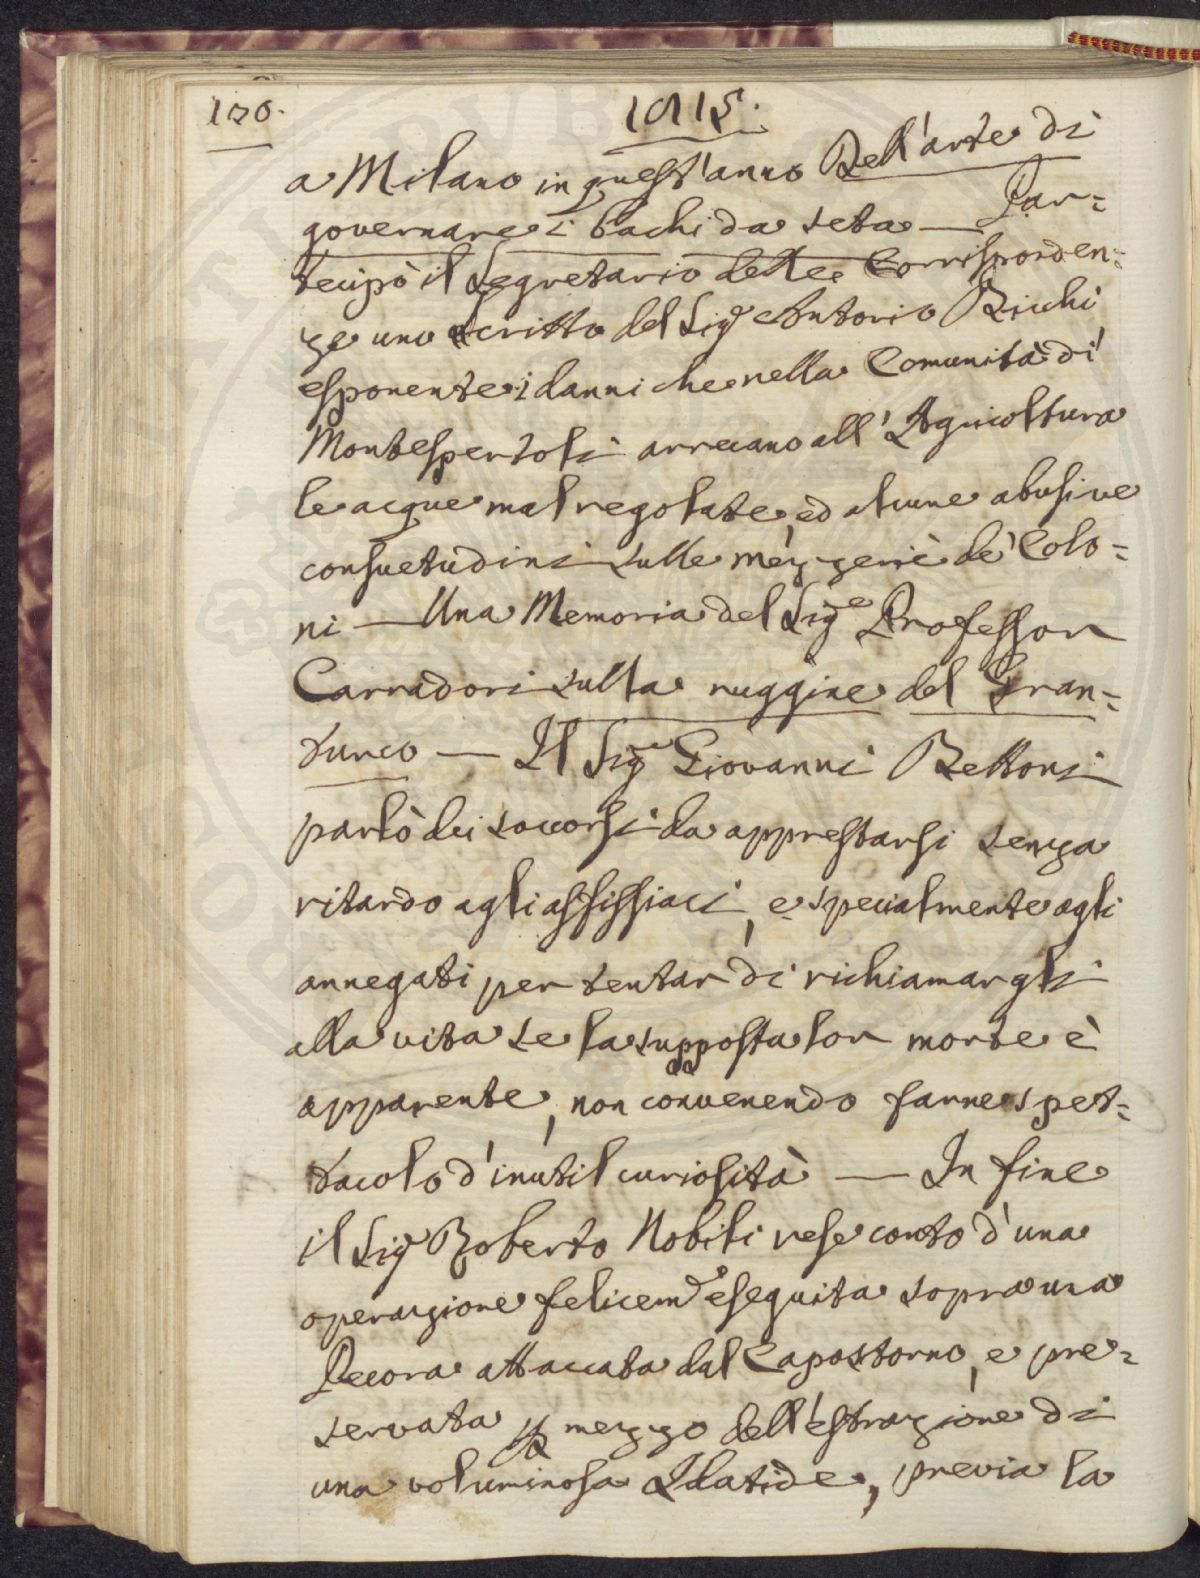 1815.
a Milano in quest'anno Dell'arte di
governare i bachi da seta — Par=
tecipò il Segretario delle Corrisponden=
ze uno scritto del Sig.e Antonio Bicchi
esponente i danni che nella Comunità di
Montespertoli arrecano all'Agricoltura
le acque mal regolate, ed alcune abusive
consuetudini sulle mezzerie de' Colo=
ni — Una Memoria del Sig.e Professor
Carradori sulla ruggine del Gran=
turco — Il Sig.e Giovanni Bettoni
parlò dei soccorsi da apprestarsi senza
ritardo agli assissiaci, e specialmente agli
annegati per tentar di richiamargli
alla vita se la supposta lor morte è
apparente, non convenendo farne spet=
tacolo d'inutil curiosità — In fine
il Sig.e Roberto Nobili rese conto d'una
operazione felicem.e eseguita sopra una
Pecora attaccata dal Capostorno, e pre=
servata p mezzo dell'estrazione di
una voluminosa Idatide, previa la